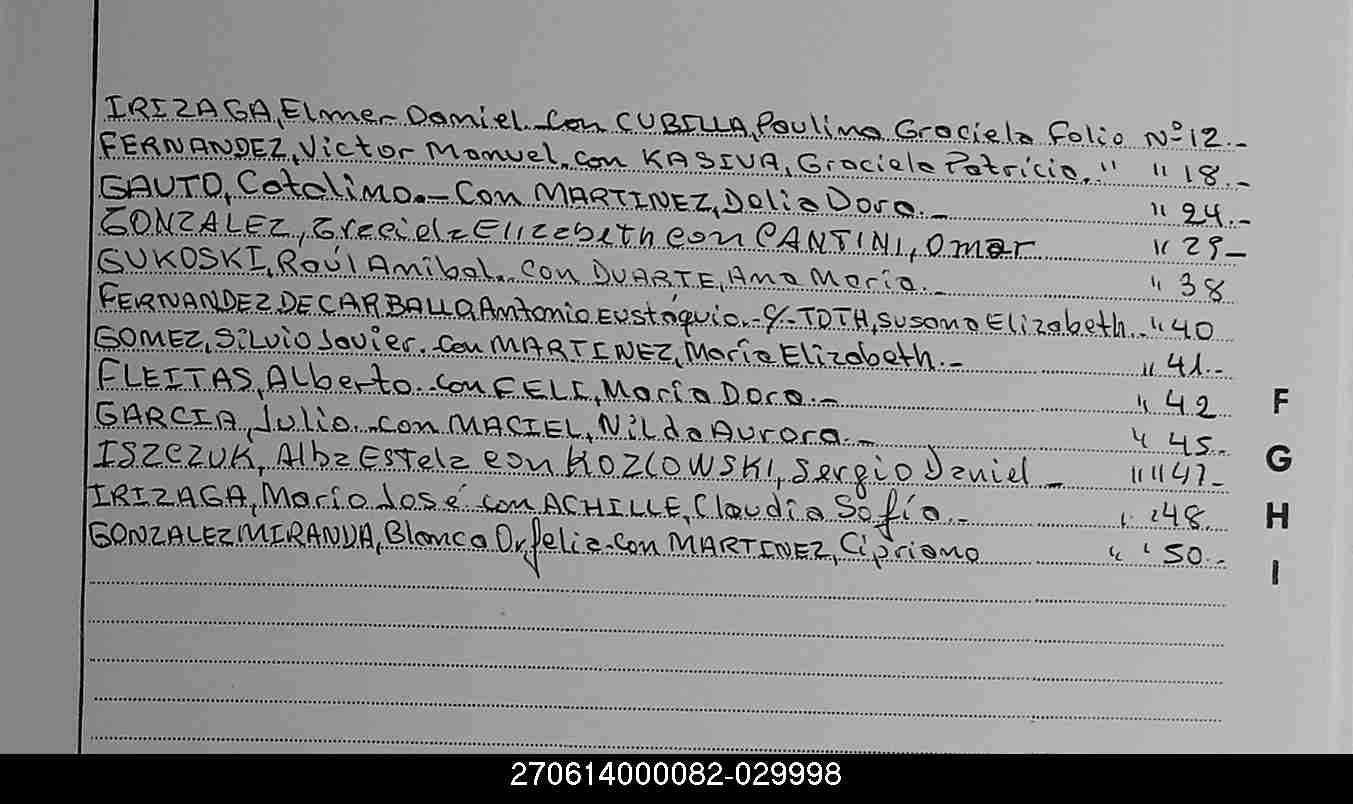 IRIZAGA, Elmer Daniel.-Con CUBILLA, Paulina Graciela Folio Nº 12.-
FERNANDEZ, Victor Manuel.-con KASIVA, Graciela Patricia. " " 18.-
GAUTO, Catalino.- Con MARTINEZ, Delia Dora.- " 24.-
GONZALEZ, Graciela Elizabeth con CANTINI, Omar " 29-
GUKOSKI, Raúl Anibal.-Con DUARTE, Ana Maria.- " 38
FERNANDEZ DE CARBALLO, Antonio Eustáquio.-C/-TOTH, Susana Elizabeth.- " 40
GOMEZ, Silvio Javier.-Con MARTINEZ, María Elizabeth.- " 41.-
FLEITAS, Alberto.-Con FELI, María Dora.- " 42
GARCIA, Julio.-con MACIEL, Nilda Aurora.- " 45.-
ISZCZUK, Alba Estela con KOZLOWSKI, Sergio Daniel - " " 47-
IRIZAGA, Mario José con ACHILLE, Claudia Sofía.- " 48.
GONZALEZ MIRANDA, Blanca Orfelia-Con MARTINEZ, Cipriano " " 50.-
F
G
H
I
270614000082-029998